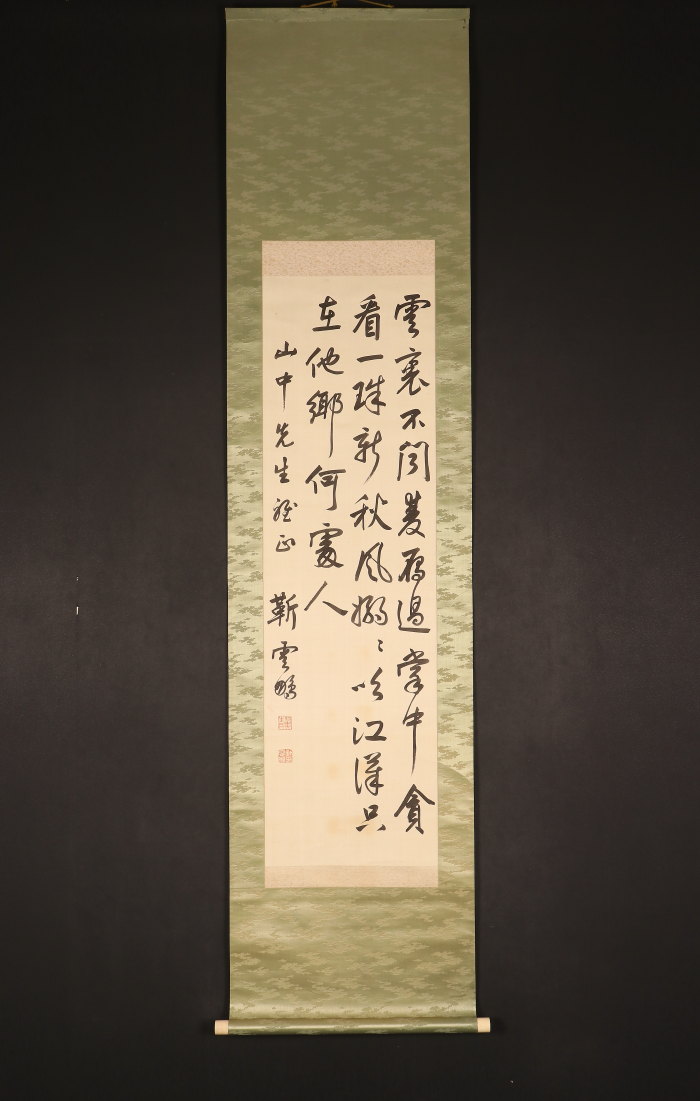 雲裏不聞雙雁過掌中貪
看一珠新秋風嫋〻吹江漢只
在他鄉何處人
山中先生雅正 靳雲鵬